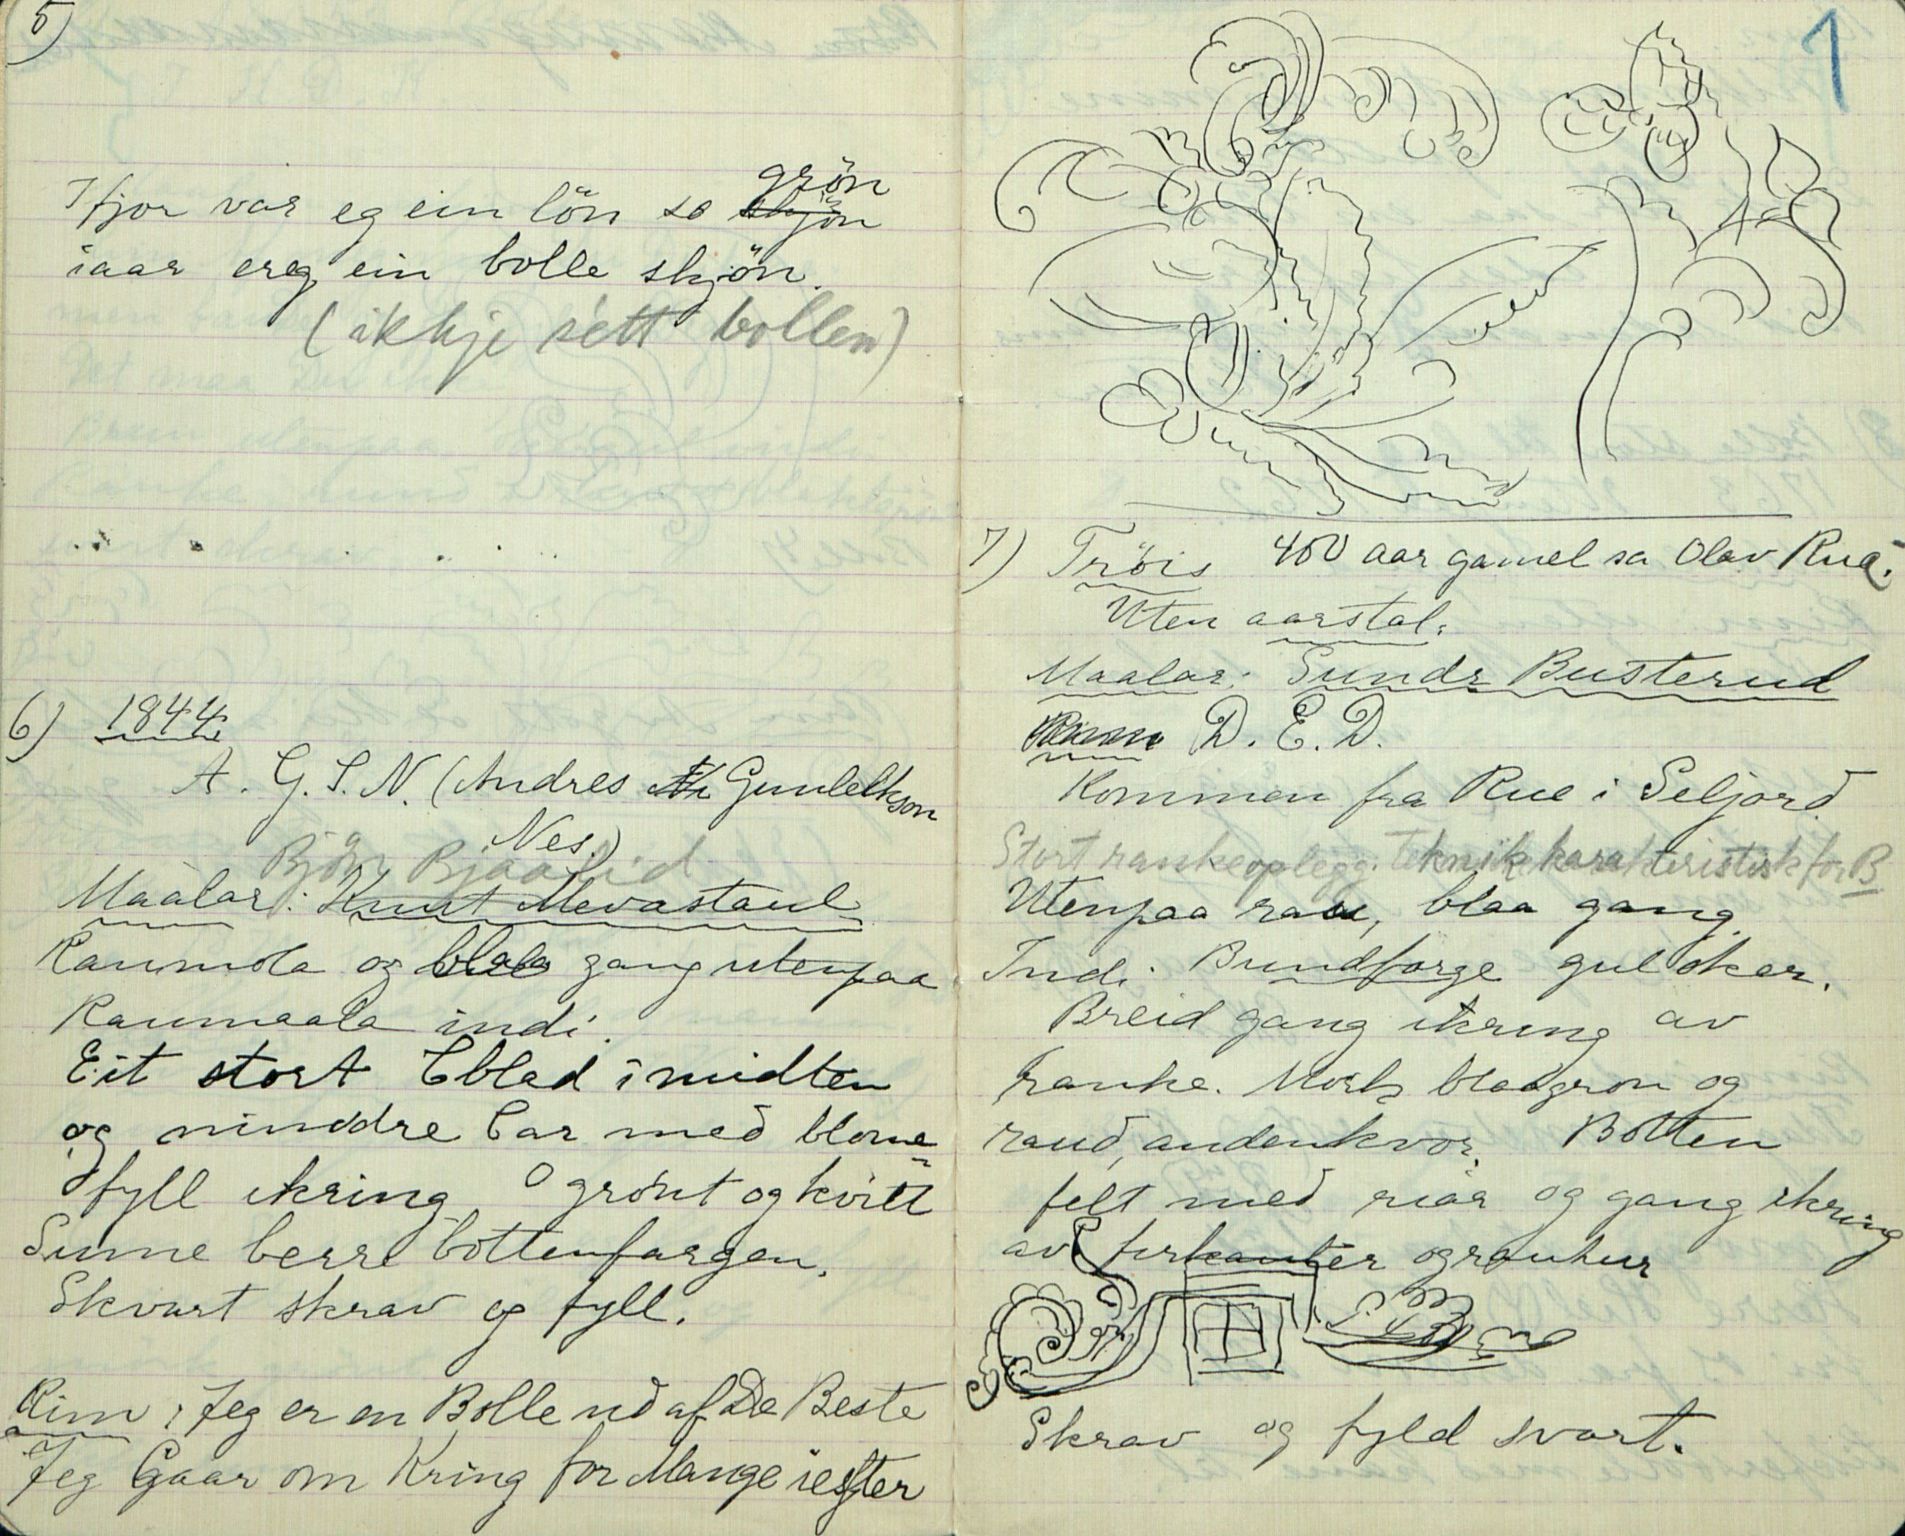 5)
grön
I fjor var eg ein lön so skjön
iaar ereg ein bolle skjön.
(ikkje sétt bollen)
6) 1844
A. G. S. N. (Andres Gunleikson
Nes.)
Björn Bjaalid
Maalar: Knut Mevastaul
Raumola og blaa gang utenpaa
Raumaala indi.
Eit stort Cblad i midten
og mindre Car med blome-
fyll ikring grönt og kvitt
Sume berre bottenfargen.
Skvart skrav og fyll.
Rim: Jeg er en Bolle ud af De Beste
Jeg Gaar om Kring for Mange iester
1
7) Tröis 400 aar gamel sa Olav Rue.
Uten aarstal.
Maalar: Sundr Busterud
D. E. D.
Kommen fra Rue i Seljord
Stort rankeoplegg. Teknikk karakteristisk for B
Utenpaa rau, blaa gang.
Indi. Bundfarge gul oker.
Breid gang ikring av
ranke. Mork blaagron og
raud, andenkvor. Botten
felt med ruar og gang ikring
av firkanter og rankur
Skrav og fyld svart.